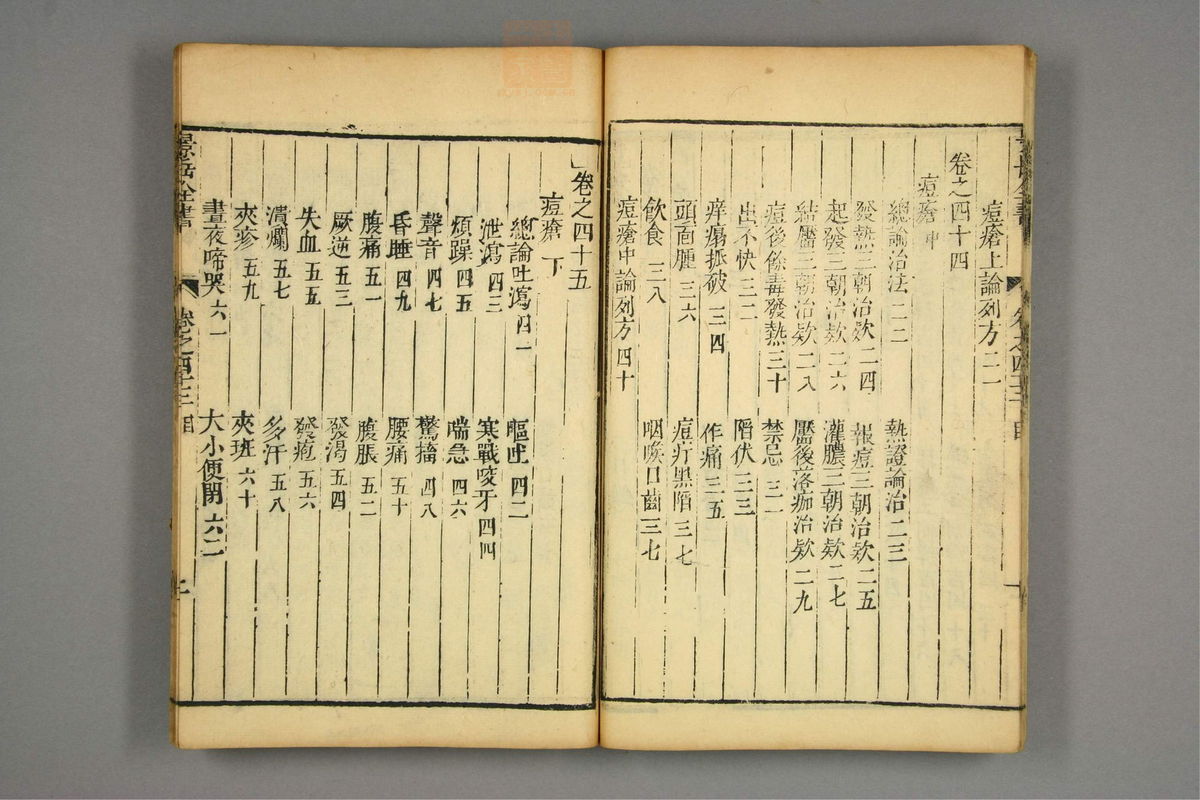 痘瘡上論列方二一
卷之四十四
痘瘡中
總論治法二二 熱證論治二三
發熱三朝治欵二四 報痘三朝治欵二五
起發三朝治欵二六 灌膿三朝治欵二七
結靨三朝治欵二八 靨後落痂治欵二九
痘後餘毒發熱三十 禁忌三一
出不快三二 陷伏三三
痒瘍抓破三四 作痛三五
頭面腫三六 痘疔黑陷三七
飲食三八 咽喉口齒三七
痘瘡中論列方四十
卷之四十五
痘瘡下
總論吐瀉四一 嘔吐四二
泄瀉四三 寒戰咬牙四四
煩躁四五 喘急四六
聲音四七 驚搐四八
昏睡四九 腰痛五十
腹痛五一 腹脹五二
厥逆五三 發渴五四
失血五五 發疱五六
潰爛五七 多汗五八
夾疹五九 夾班六十
晝夜啼哭六一 大小便閉六二
景岳全書 卷之四十三目